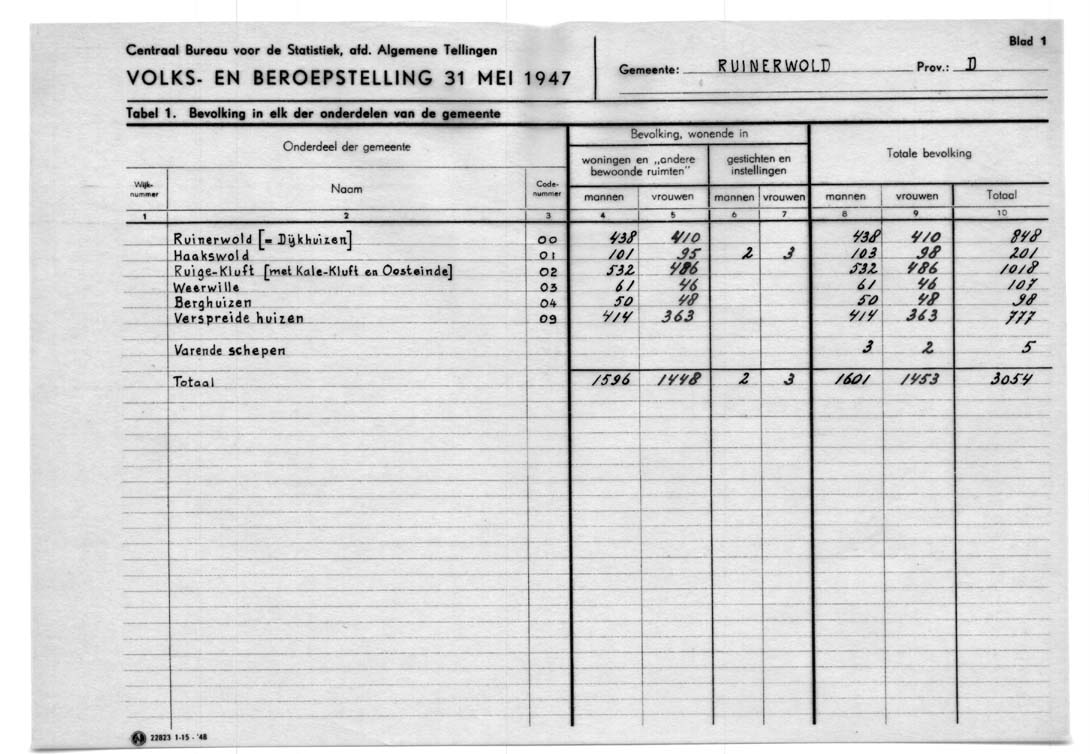 Centraal Bureau voor de Statistiek, afd. Algemene Tellingen
VOLKS- EN BEROEPSTELLING 31 MEI 1947
Blad 1
Gemeente: RUINERWOLD Prov.: D
Tabel 1. Bevolking in elk der onderdelen van de gemeente
Onderdeel der gemeente
Bevolking, wonende in
Totale bevolking
woningen en „andere bewoonde ruimten”
gestichten en instellingen
Wijk-nummer Naam Code-nummer mannen vrouwen mannen vrouwen mannen vrouwen Totaal
1 2 3 4 5 6 7 8 9 10
Ruinerwold [= Dijkhuizen] 00 438 410 438 410 848
Haakswold 01 101 95 2 3 103 98 201
Ruige-Kluft [met Kale-Kluft en Oosteinde] 02 532 486 532 486 1018
Weerwille 03 61 46 61 46 107
Berghuizen 04 50 48 50 48 98
Verspreide huizen 09 414 363 414 363 777
Varende schepen 3 2 5
Totaal 1596 1448 2 3 1601 1453 3054
22823 1-15-'48